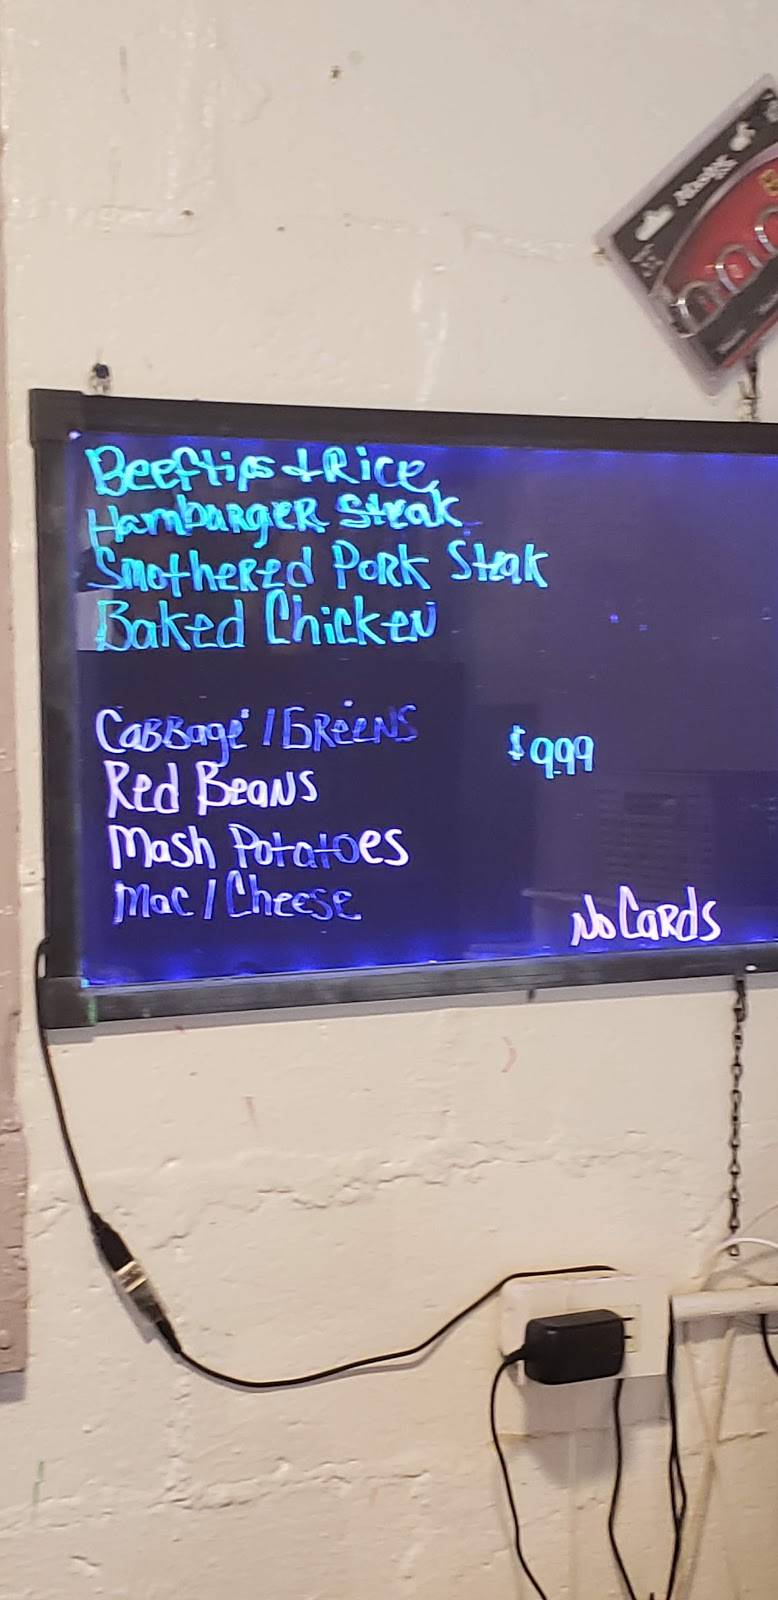 Beeftips + Rice
Hambarger Steak
Smothered Pork Steak
Baked Chicken
Cabbage / Greens
$9.99
Red Beans
Mash Potatoes
Mac / Cheese
No Cards
Master